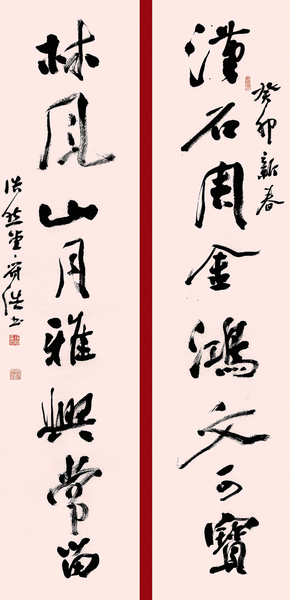 漢石周金鴻文可寶
癸卯新春
林風山月雅興常留
浩然堂